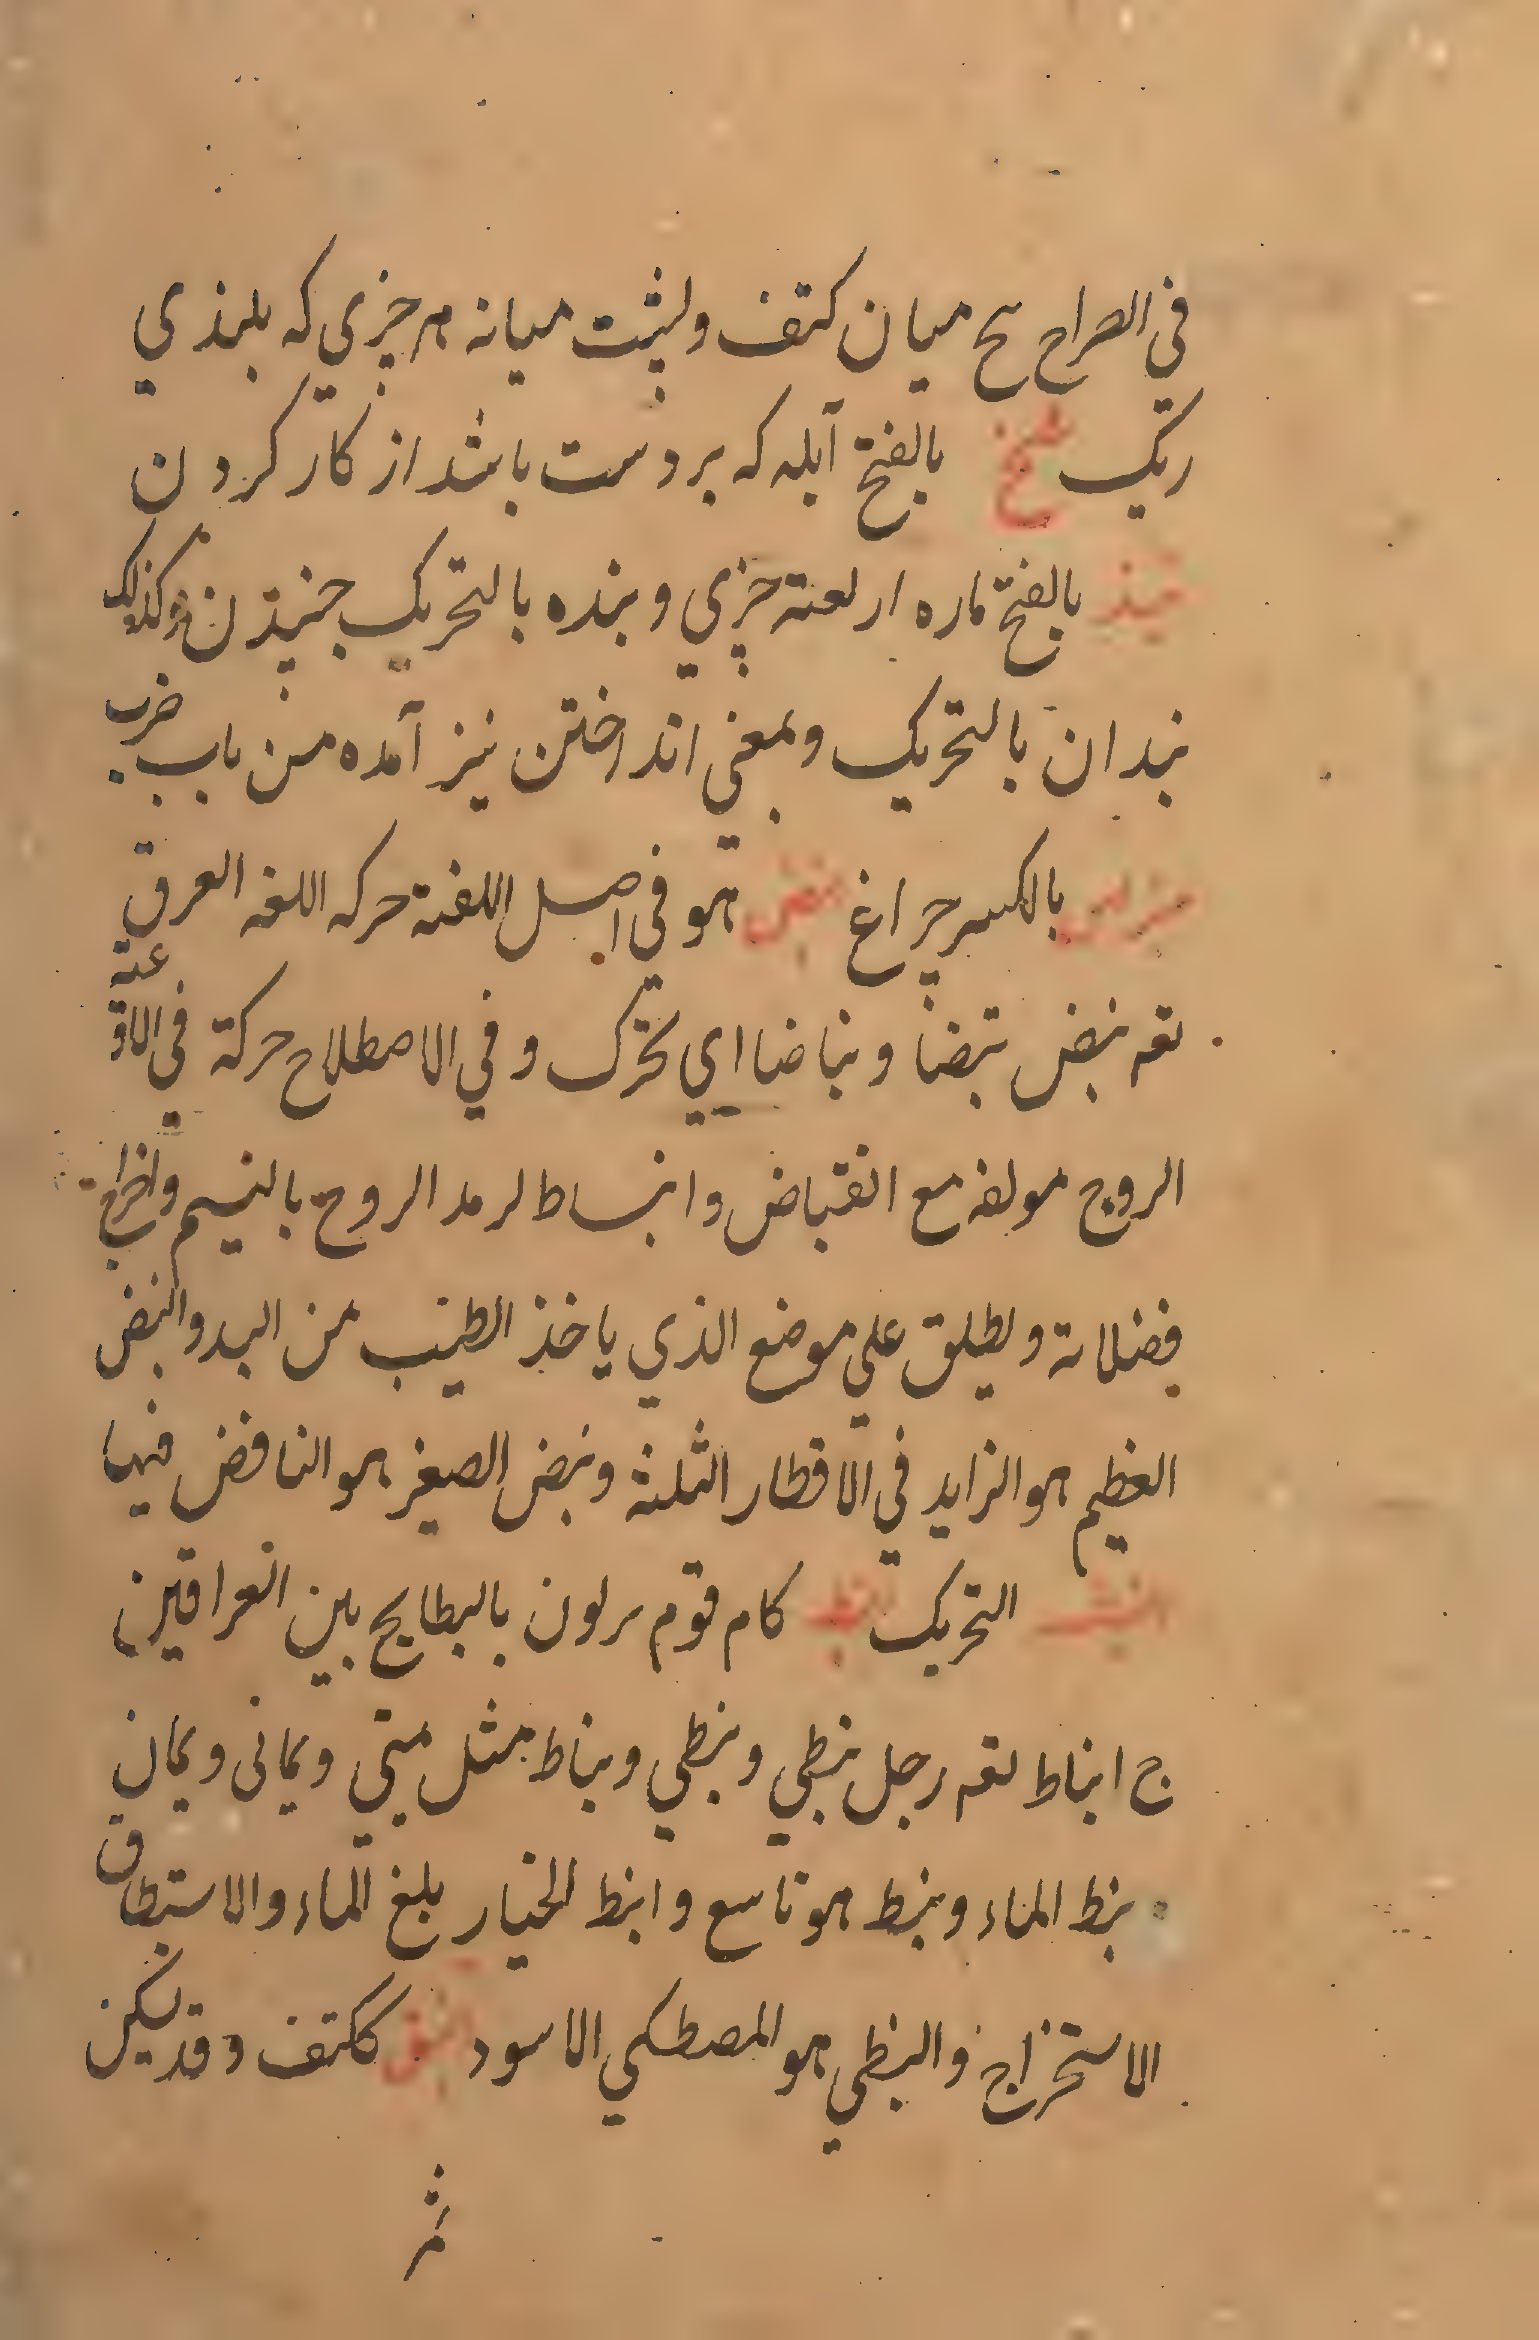 في الصراح بح ميان كتف و پشت ميانه هر چيزي كه بلندي
ريك نبخ بالفتح آبله كه بر دست باشد از كار كردن
نبذ بالفتح ماره از لعنة چيزي و بنده بالتحريك جنيدن وكذلك
نبدان بالتحريك و بمعني انداختن نيز آمده من باب ضرب
نبراس بالكسر چراغ نبض هو في اصل اللغة حركه اللغه العرق
لقه نبض نبضا و نباضا اي تحرك و في الاصطلاح حركة في الاوعية
الروح مولفه مع انقباض و انبساط لرمد الروح بالنسيم واخراج
فضلاته و يطلق علي موضع الذي ياخذ الطبيب من اليد والنبض
العظيم هو الزايد في الاقطار الثلثة و نبض الصغير هو الناقض فيها
التحريك النبط كام قوم يزلون بالبطايح بين العراقين
ج انباط لقه رجل نبطي و نبطي و نباط مثل متي و يماني و يمان
نبط الماء و نبط هو تاسع و انبط الحيار بلغ الماء والاستطاق
الاستخراج والنبطي هو المصطكي الاسود النبق ككتف و قد يكن
ثمر